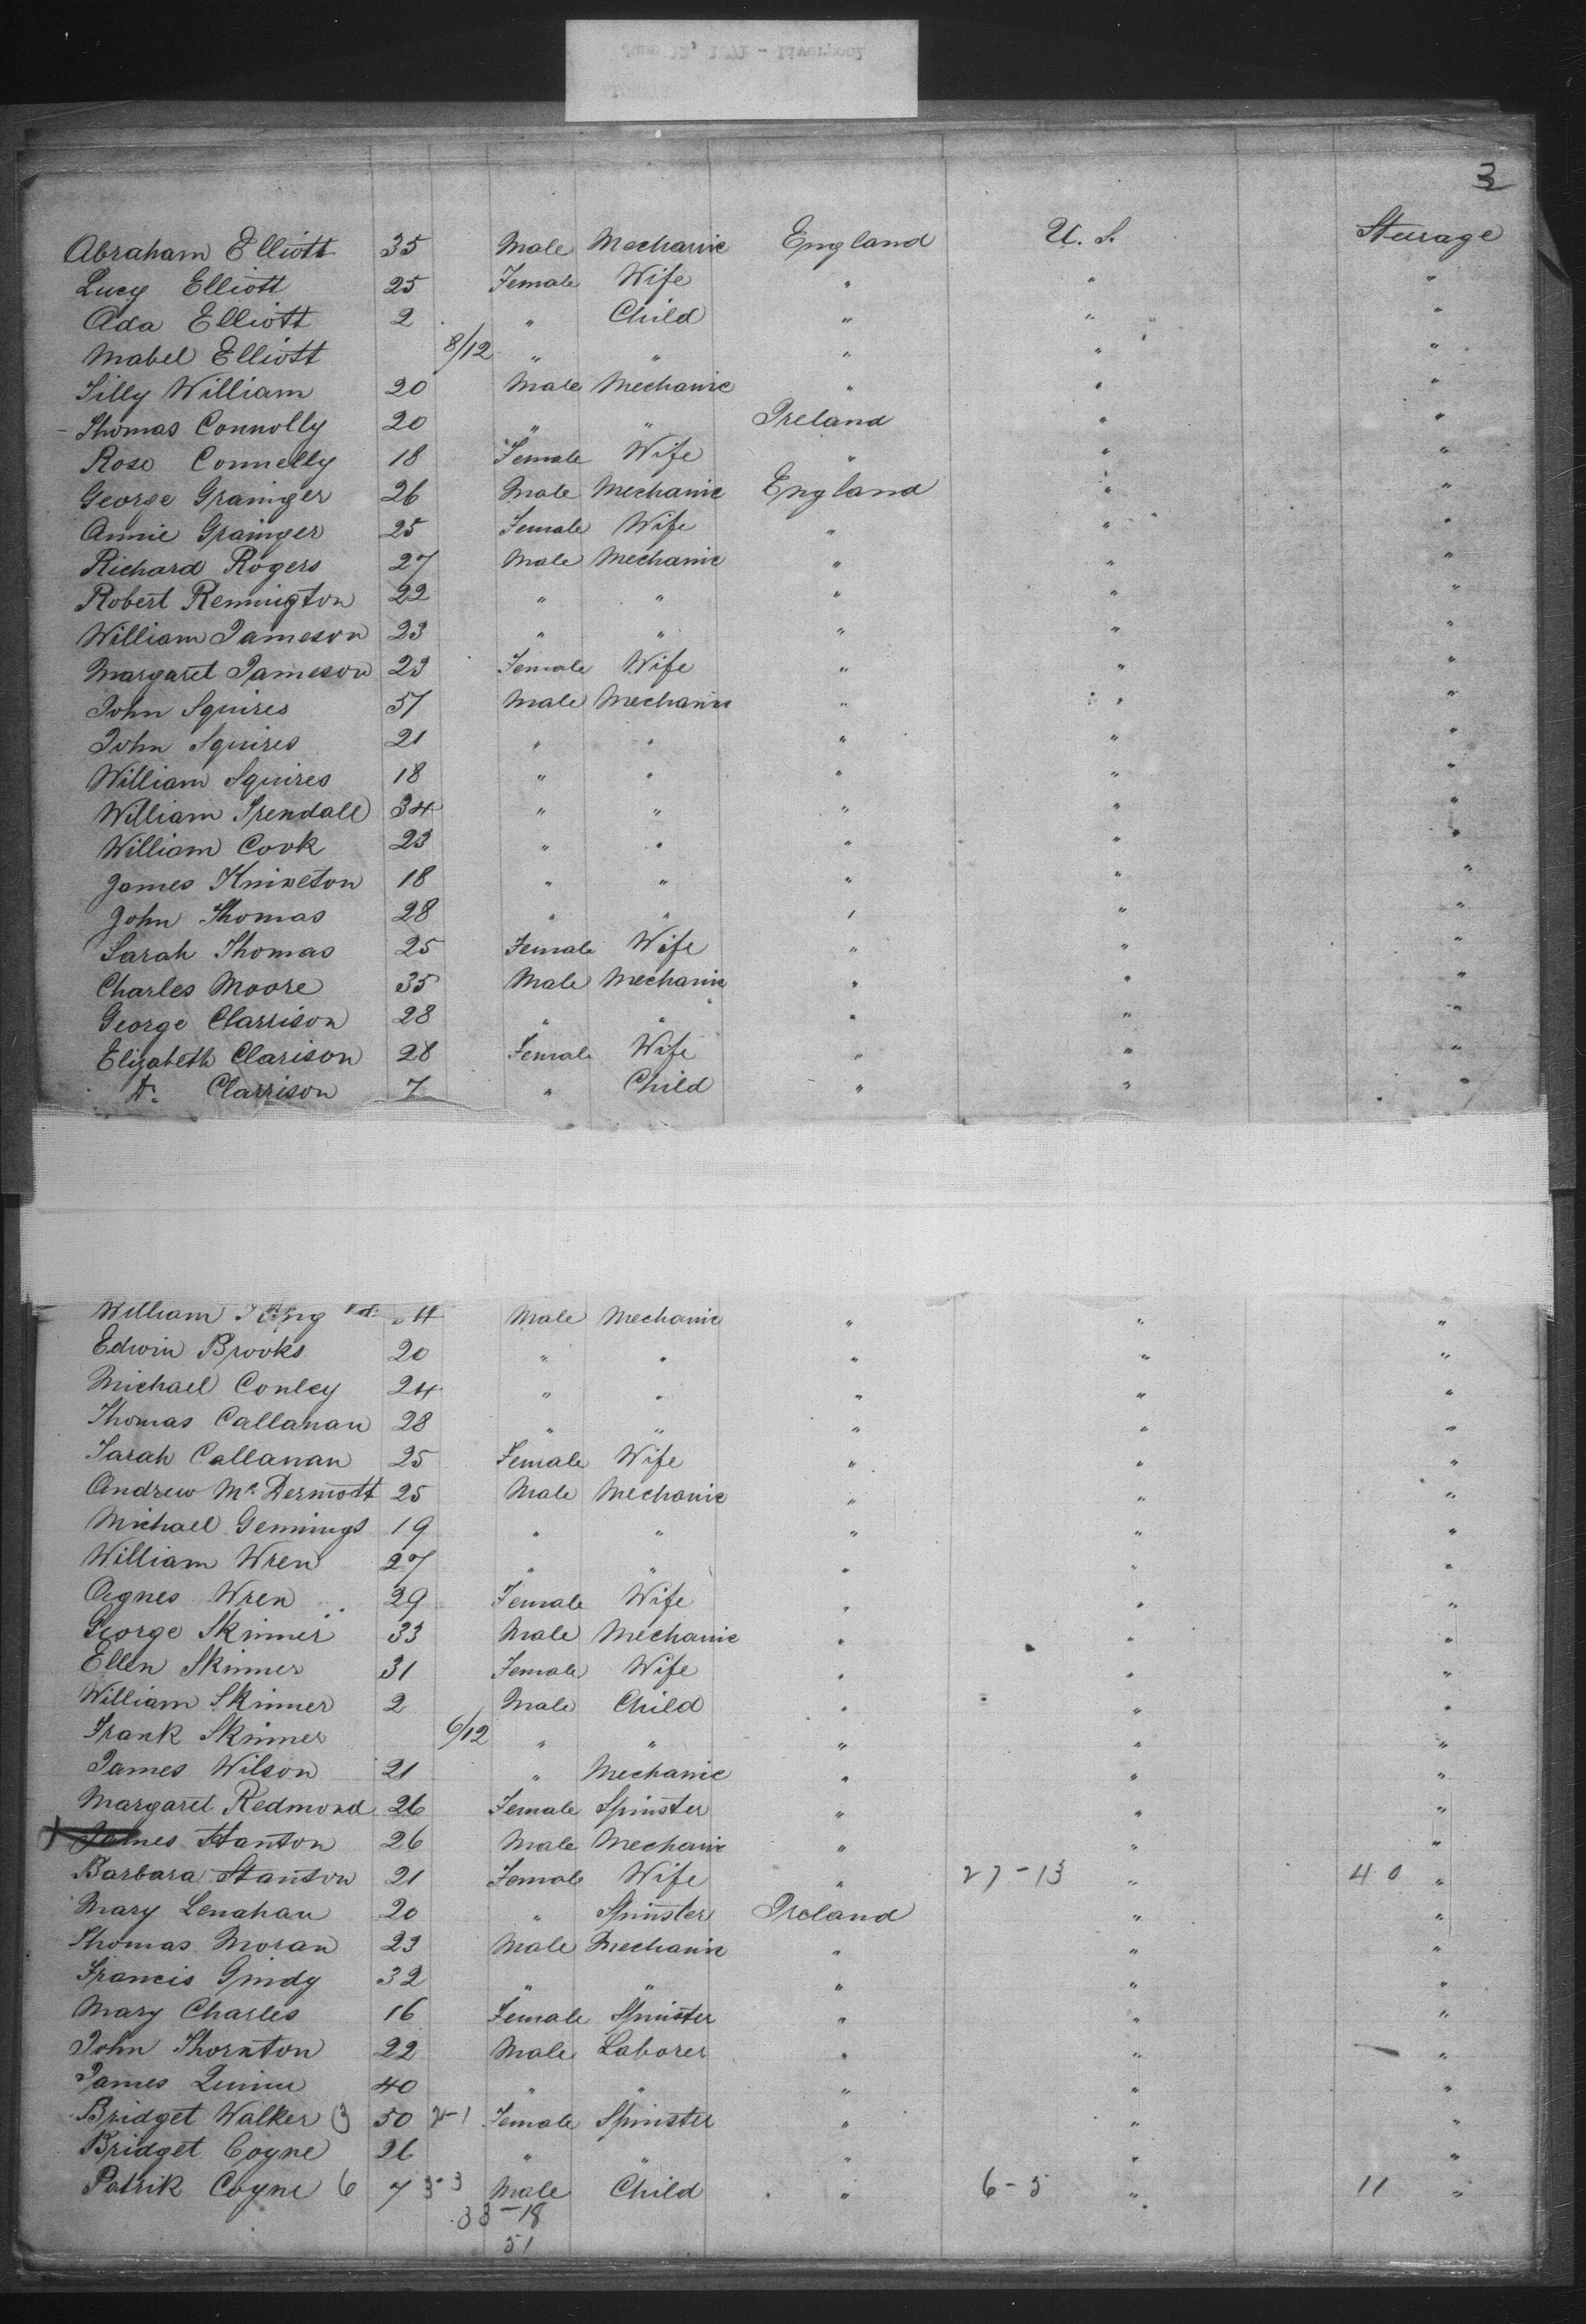 3
Abraham Elliott 35 Male Mechanic England U. S. Steerage
Lucy Elliott 25 Female Wife " " "
Ada Elliott 2 " Child " " "
Mabel Elliott 8/12 " " " " "
Tilly William 20 Male Mechanic " " "
Thomas Connolly 20 " " Ireland " "
Rose Connelly 18 Female Wife " " "
George Grainger 26 Male Mechanic England " "
Annie Grainger 25 Female Wife " " "
Richard Rogers 27 Male Mechanic " " "
Robert Remington 22 " " " " "
William Jameson 23 " " " " "
Margaret Jameson 23 Female Wife " " "
John Squires 57 Male Mechanic " " "
John Squires 21 " " " " "
William Squires 18 " " " " "
William Trendall 34 " " " " "
William Cook 23 " " " " "
James Kniveton 18 " " " " "
John Thomas 28 " " " " "
Sarah Thomas 25 Female Wife " " "
Charles Moore 35 Male Mechanic " " "
George Clarrison 28 " " " " "
Elizabeth Clarison 28 Female Wife " " "
Do. Clarrison 7 " Child " " "
William Male Mechanic " " "
Edwin Brooks 20 " " " " "
Michael Conley 24 " " " " "
Thomas Callanan 28 " " " " "
Sarah Callanan 25 Female Wife " " "
Andrew Mc. Dermott 25 Male Mechanic " " "
Michael Gennings 19 " " " " "
William Wren 27 " " " " "
Agnes Wren 29 Female Wife " " "
George Skinner 33 Male Mechanic " " "
Ellen Skinner 31 Female Wife " " "
William Skinner 2 Male Child " " "
Frank Skinner 6/12 " " " " "
James Wilson 21 " Mechanic " " "
Margaret Redmond 26 Female Spinster " " "
James Stanton 26 Male Mechanic " " "
Barbara Stanton 21 Female Wife " 27-13 " 40 "
Mary Lenahan 20 " Spinster Ireland " "
Thomas Moran 23 Male Mechanic " " "
Francis 32 " " " " "
Mary Charles 16 Female Spinster " " "
John Thornton 22 Male Laborer " " "
James Quinn 40 " " " " "
Bridget Walker 3 50 Female Spinster " " "
Bridget Coyne 26 " " " " "
Patrik Coyne 6 7 Male Child " 6-5 " 11 "
33-18
51